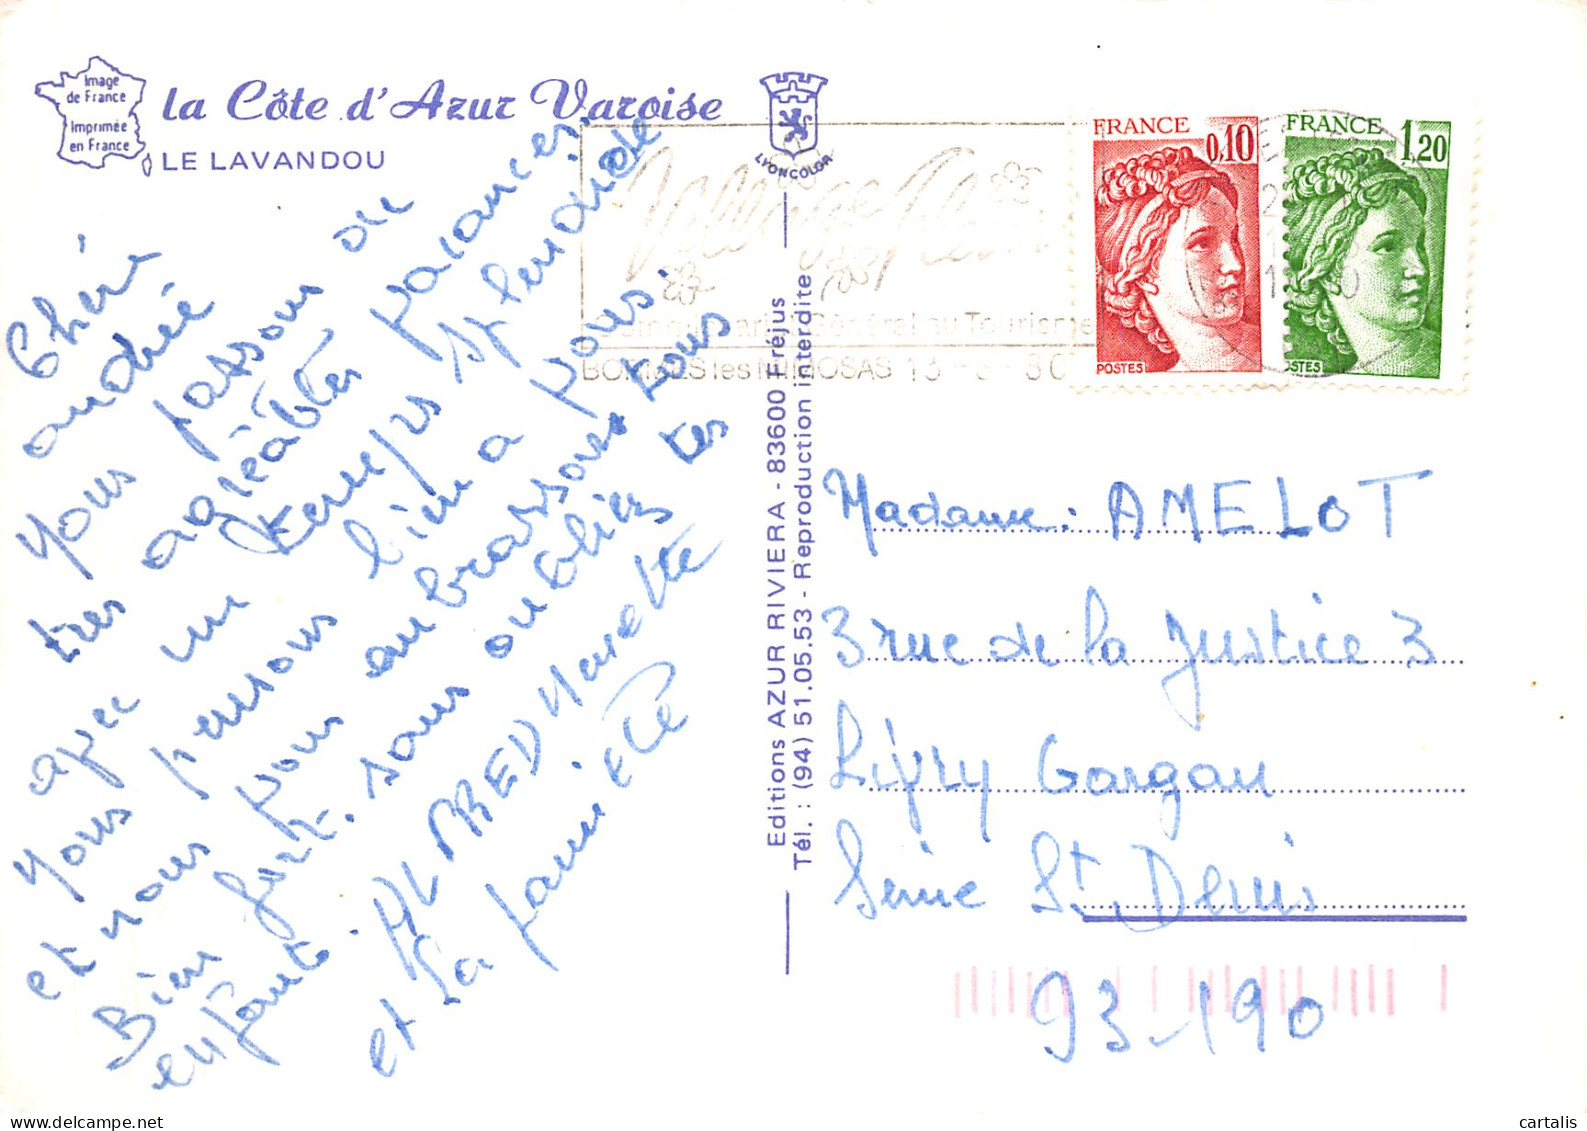 Image
de France
Imprimée
en France
la Côte d'Azur Varoise
LE LAVANDOU
LYONCOLOR
Chéri
andrée
Nous passons de
tres agréables vacances.
avec un temps splendide
Nous pensons bien a vous
et nous vous embrassons tous
Bien fort. sans oublier tes
enfants. ALFRED Nanette
et la famille
Editions AZUR RIVIERA - 83600 Fréjus
Tél. : (94) 51.05.53 - Reproduction interdite
Village
Général au Tourisme
BORMES les MIMOSAS 13 - 80
FRANCE
0,10
POSTES
FRANCE
1,20
POSTES
Madame. AMELOT
3 rue de la Justice 3
Livry Gargan
Seine St. Denis
93-190
cartalis